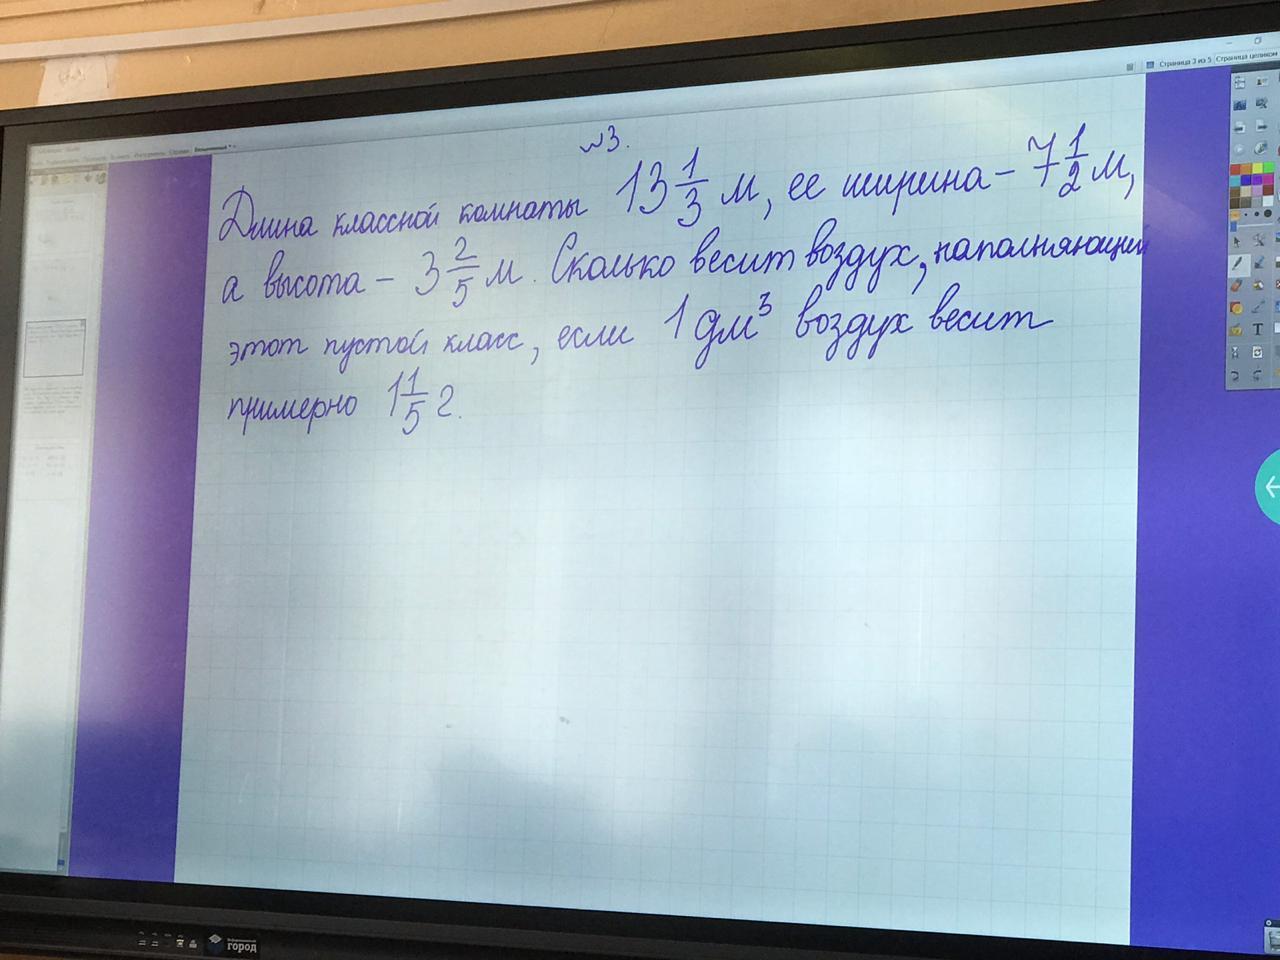 Страница 3 из 5 Страница целиком
№3.
Длина классной комнаты 13 1/3 м, ее ширина – 7 1/2 м,
а высота – 3 2/5 м. Сколько весит воздух, наполняющий
этот пустой класс, если 1 дм³ воздух весит
примерно 1 1/5 г.
город